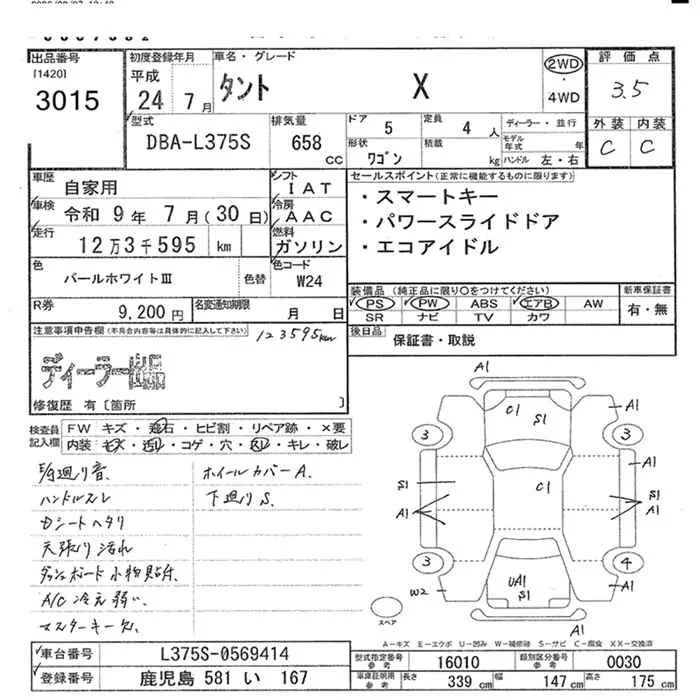 出品番号
[1420]
3015
初度登録年月
平成
24 7月
車名・グレード
タント X
2WD
・
4WD
評価点
3.5
外装 内装
C C
型式
DBA-L375S
排気量
658 CC
ドア 5
形状 ワゴン
定員 4 人
積載 kg
ディーラー・並行
モデル年式 年
ハンドル 左・右
車歴 自家用
シフト IAT
車検 令和 9年 7月(30日)
冷房 AAC
走行 12万3千595 km
燃料 ガソリン
色 パールホワイトIII 色替
色コード W24
R券 9,200円
名変通知期限 月 日
セールスポイント(正常に機能するものに限ります)
・スマートキー
・パワースライドドア
・エコアイドル
装備品(純正品に限り○をつけてください)
PS PW ABS エアB AW
SR ナビ TV カワ
新車保証書
有・無
後日品 保証書・取説
注意事項申告欄(不具合内容等は具体的に記入して下さい)
123595km
修復歴 有[箇所 ]
検査員記入欄
FW キズ・飛石・ヒビ割・リペア跡・×要
内装:キズ・汚レ・コゲ・穴・スレ・キレ・破レ
ハンドルスレ
Dシートヘタリ
天張り汚れ
ダッシュボード小物貼付.
A/C冷え弱い.
マスターキー欠.
ホイールカバーA.
下廻りS.
A1
C1 S1
A1
3 3
A1
S1 C1 S1
A1 A1
3 4
W2 UA1 S1 A1
A1
スペア
A-キズ E-エクボ U-凹み W-補修跡 S-サビ C-腐食 XX-交換済
車台番号 L375S-0569414
登録番号 鹿児島 581 い 167
型式指定番号 参考 16010
類別区分番号 参考 0030
車庫証明用 参考 長さ 339 cm 幅 147 cm 高さ 175 cm